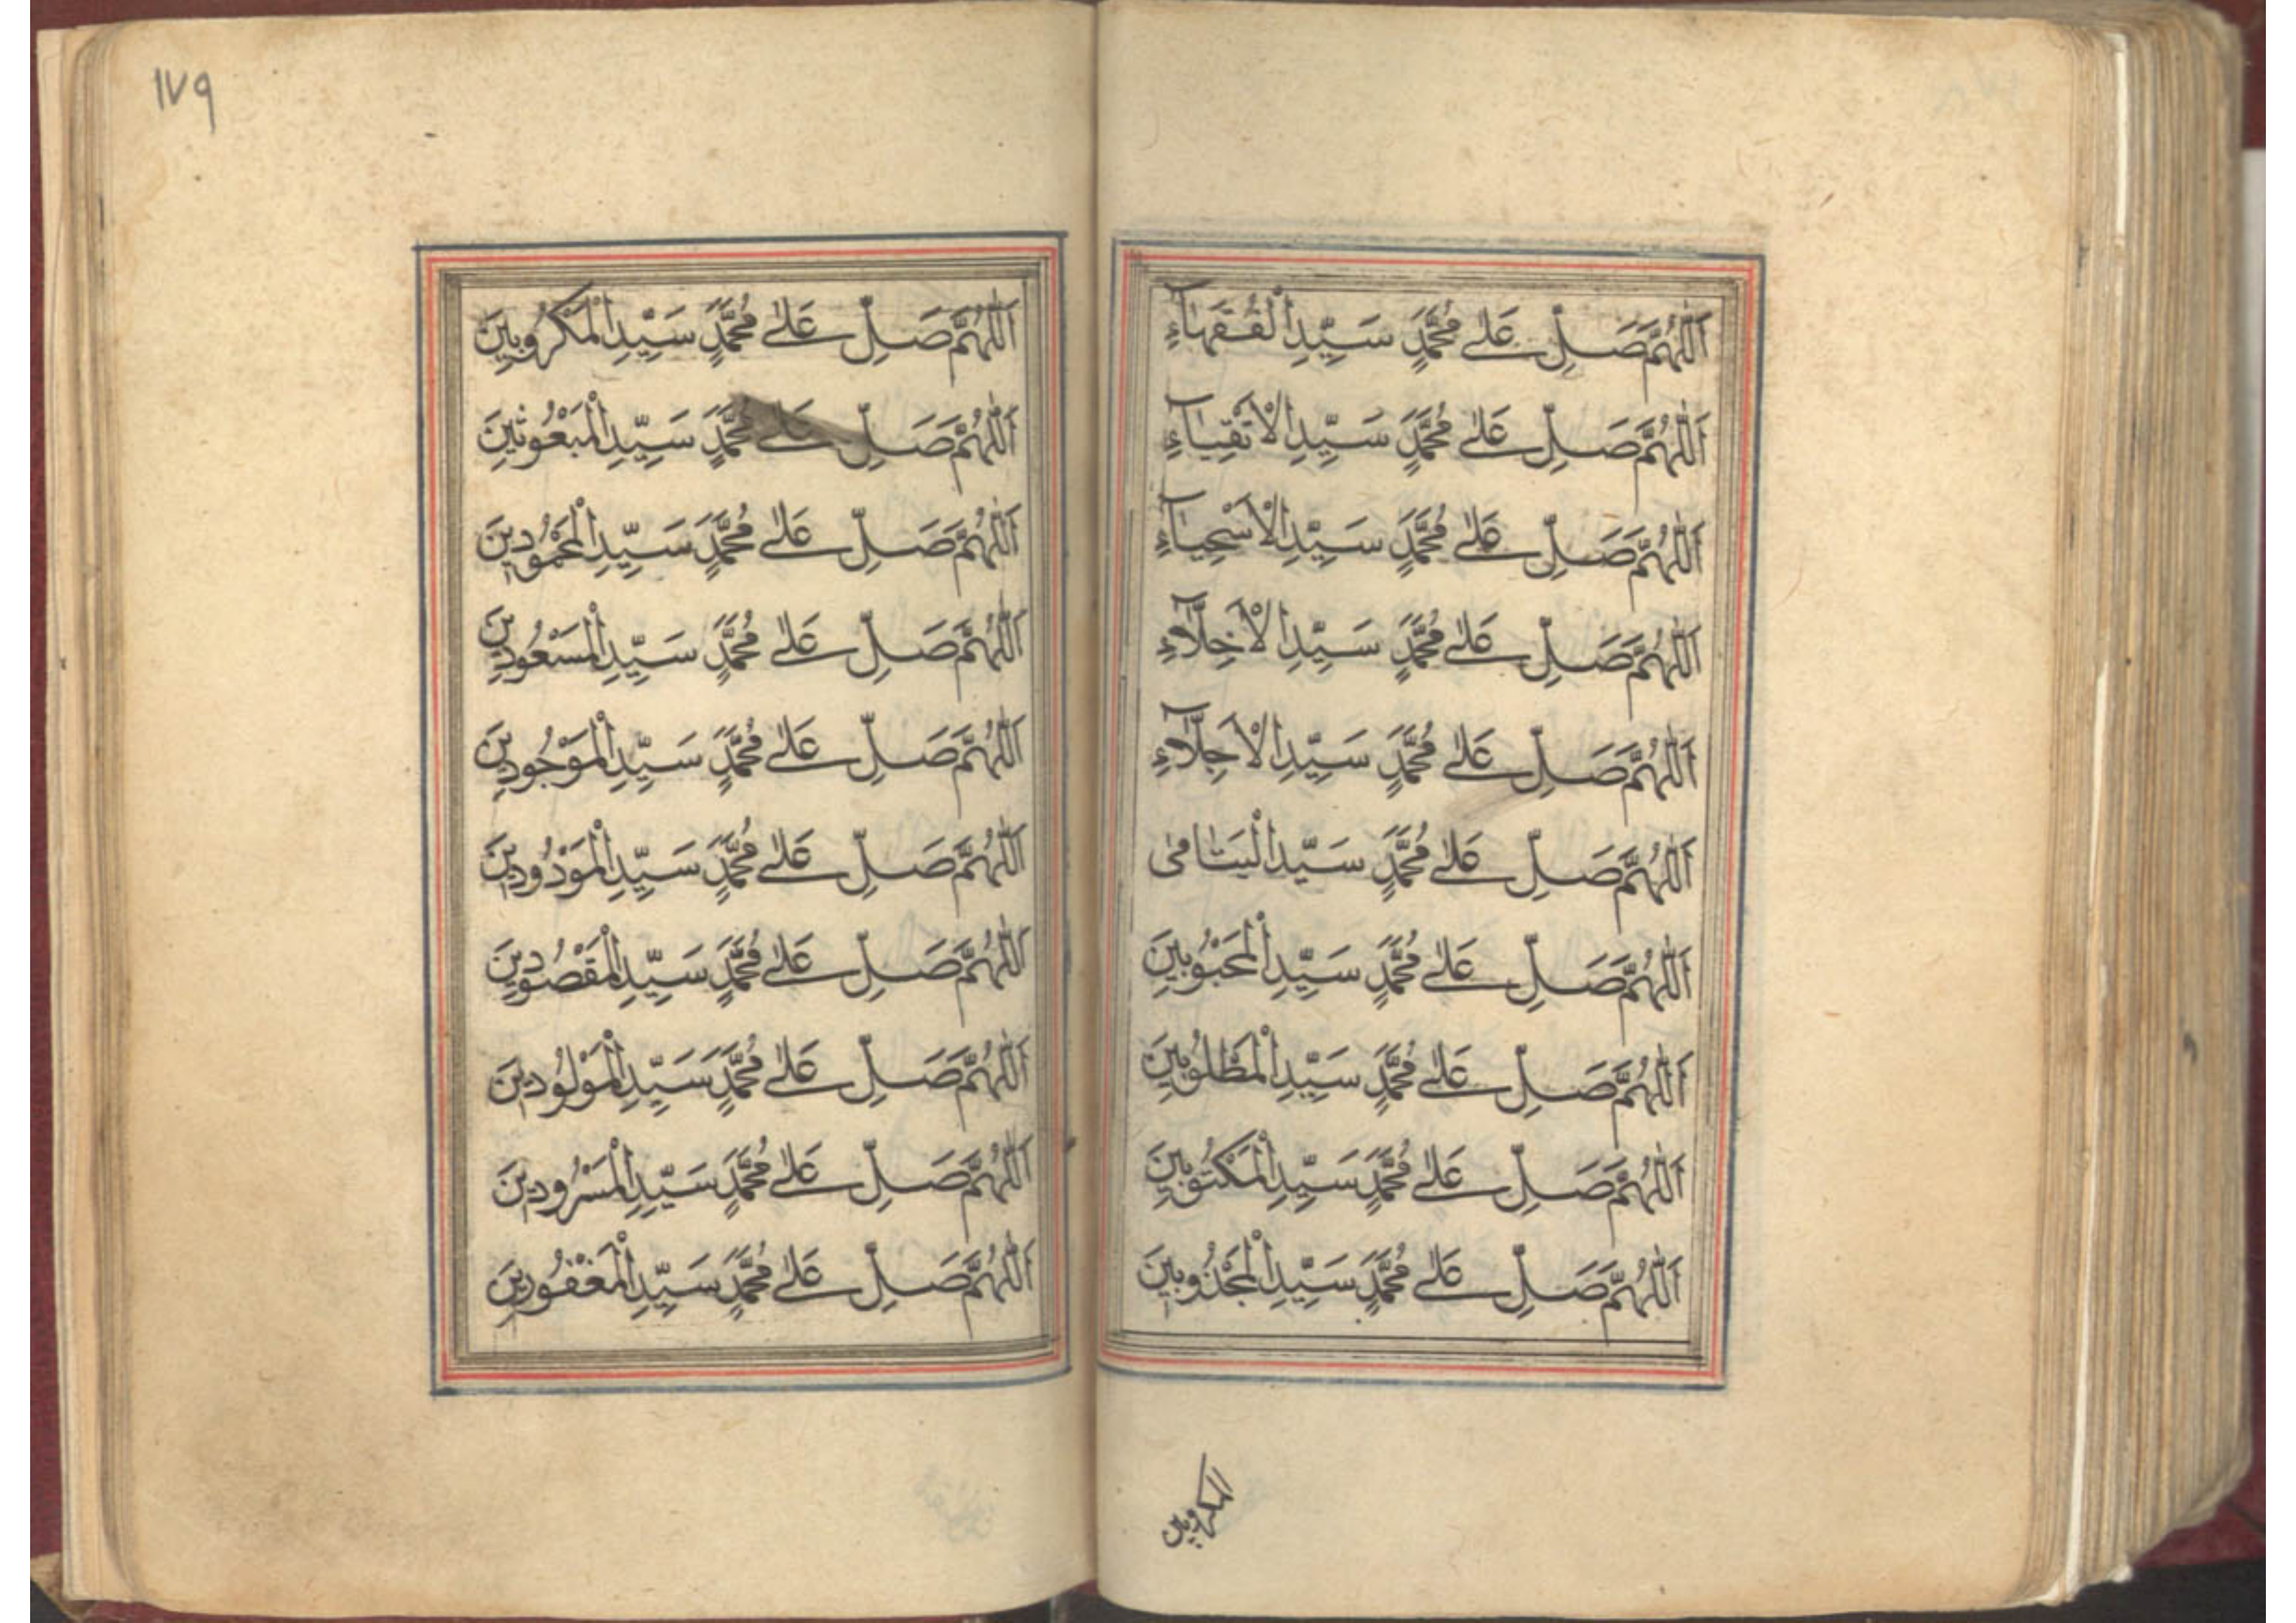 اَللّٰهُمَّ صَلِّ عَلٰے مُحَمَّدٍ سَيِّدِ الْفُقَهَآءِ
اَللّٰهُمَّ صَلِّ عَلٰے مُحَمَّدٍ سَيِّدِ الْاَتْقِيَآءِ
اَللّٰهُمَّ صَلِّ عَلٰے مُحَمَّدٍ سَيِّدِ الْاَسْخِيَآءِ
اَللّٰهُمَّ صَلِّ عَلٰے مُحَمَّدٍ سَيِّدِ الْاَخِلَّآءِ
اَللّٰهُمَّ صَلِّ عَلٰے مُحَمَّدٍ سَيِّدِ الْاَجِلَّآءِ
اَللّٰهُمَّ صَلِّ عَلٰے مُحَمَّدٍ سَيِّدِ الْيَتَامٰى
اَللّٰهُمَّ صَلِّ عَلٰے مُحَمَّدٍ سَيِّدِ الْمَحْبُوْبِيْنَ
اَللّٰهُمَّ صَلِّ عَلٰے مُحَمَّدٍ سَيِّدِ الْمَطْلُوْبِيْنَ
اَللّٰهُمَّ صَلِّ عَلٰے مُحَمَّدٍ سَيِّدِ الْمَكْتُوْبِيْنَ
اَللّٰهُمَّ صَلِّ عَلٰے مُحَمَّدٍ سَيِّدِ الْمَجْذُوْبِيْنَ
المكروبين
١٧٩
اَللّٰهُمَّ صَلِّ عَلٰے مُحَمَّدٍ سَيِّدِ الْمَكْرُوْبِيْنَ
اَللّٰهُمَّ صَلِّ عَلٰے مُحَمَّدٍ سَيِّدِ الْمَبْعُوْثِيْنَ
اَللّٰهُمَّ صَلِّ عَلٰے مُحَمَّدٍ سَيِّدِ الْمَحْمُوْدِيْنَ
اَللّٰهُمَّ صَلِّ عَلٰے مُحَمَّدٍ سَيِّدِ الْمَسْعُوْدِيْنَ
اَللّٰهُمَّ صَلِّ عَلٰے مُحَمَّدٍ سَيِّدِ الْمَوْجُوْدِيْنَ
اَللّٰهُمَّ صَلِّ عَلٰے مُحَمَّدٍ سَيِّدِ الْمَوْدُوْدِيْنَ
اَللّٰهُمَّ صَلِّ عَلٰے مُحَمَّدٍ سَيِّدِ الْمَقْصُوْدِيْنَ
اَللّٰهُمَّ صَلِّ عَلٰے مُحَمَّدٍ سَيِّدِ الْمَوْلُوْدِيْنَ
اَللّٰهُمَّ صَلِّ عَلٰے مُحَمَّدٍ سَيِّدِ الْمَسْرُوْرِيْنَ
اَللّٰهُمَّ صَلِّ عَلٰے مُحَمَّدٍ سَيِّدِ الْمَغْفُوْرِيْنَ